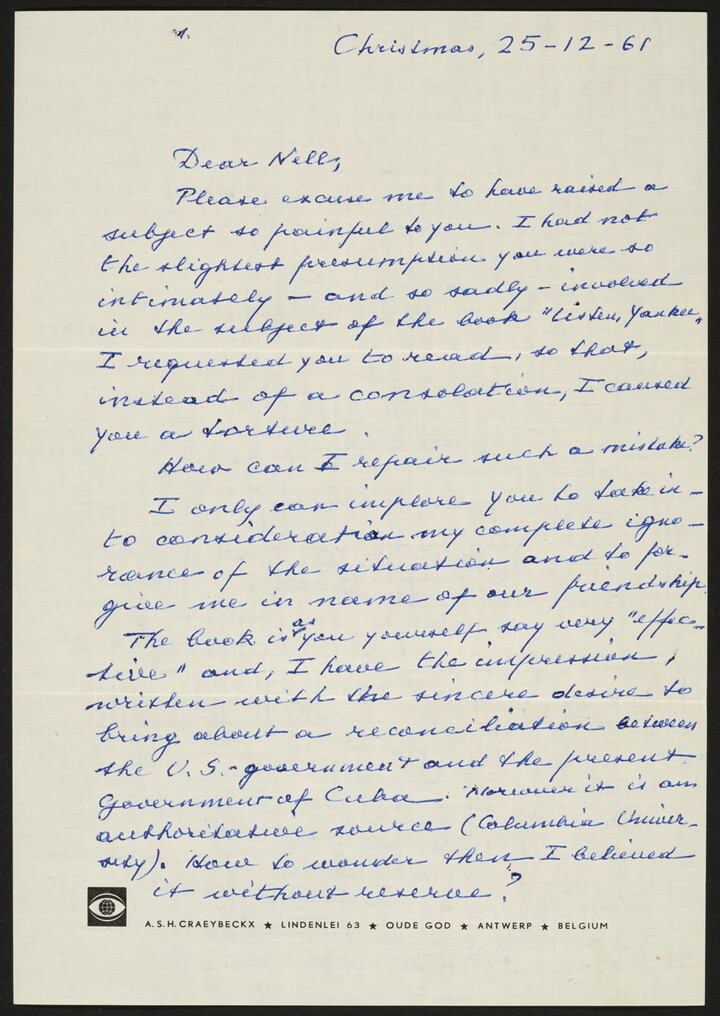 1.
Christmas, 25-12-61
Dear Nell,
Please excuse me to have raised a
subject so painful to you. I had not
the slightest presumption you were so
intimately – and so sadly – involved
in the subject of the book "Listen, Yankee"
I requested you to read, so that,
instead of a consolation, I caused
you a torture.
How can I repair such a mistake?
I only can implore you to take in-
to consideration my complete igno-
rance of the situation and to for-
give me in name of our friendship.
The book is, as you yourself say very "effec-
tive" and, I have the impression,
written with the sincere desire to
bring about a reconciliation between
the U.S.-government and the present
Government of Cuba. Moreover it is an
authoritative source (Columbia Univer-
sity). How to wonder then I believed
it without reserve?
A.S.H. CRAEYBECKX ★ LINDENLEI 63 ★ OUDE GOD ★ ANTWERP ★ BELGIUM